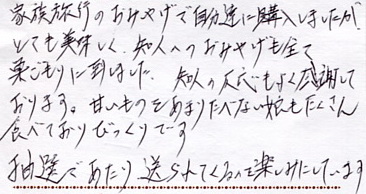 家族旅行のおみやげで自分達に購入しましたが、
とても美味しく、知人へのおみやげも全て
巣ごもりに到しました。知人の反応もすく感謝して
おります。甘いものをあまりたべない娘もたくさん
食べておりびっくりです
抽選であたり送られてくるので楽しみにしています